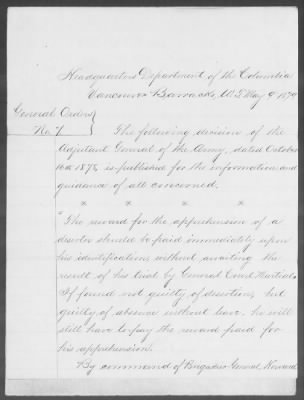 Headquarters Department of the Columbia
Vancouver Barracks, W.T. May 9th 1879
General Orders
No. 7.
The following decision of the
Adjutant General of the Army, dated October
16th 1878, is published for the information and
guidance of all concerned.
x x x x
"The reward for the apprehension of a
deserter should be paid immediately upon
his identification, without awaiting the
result of his trial by General Court Martial.
If found not guilty of desertion, but
guilty of absence without leave, he will
still have to pay the reward paid for
his apprehension.
By command of Brigadier General Howard